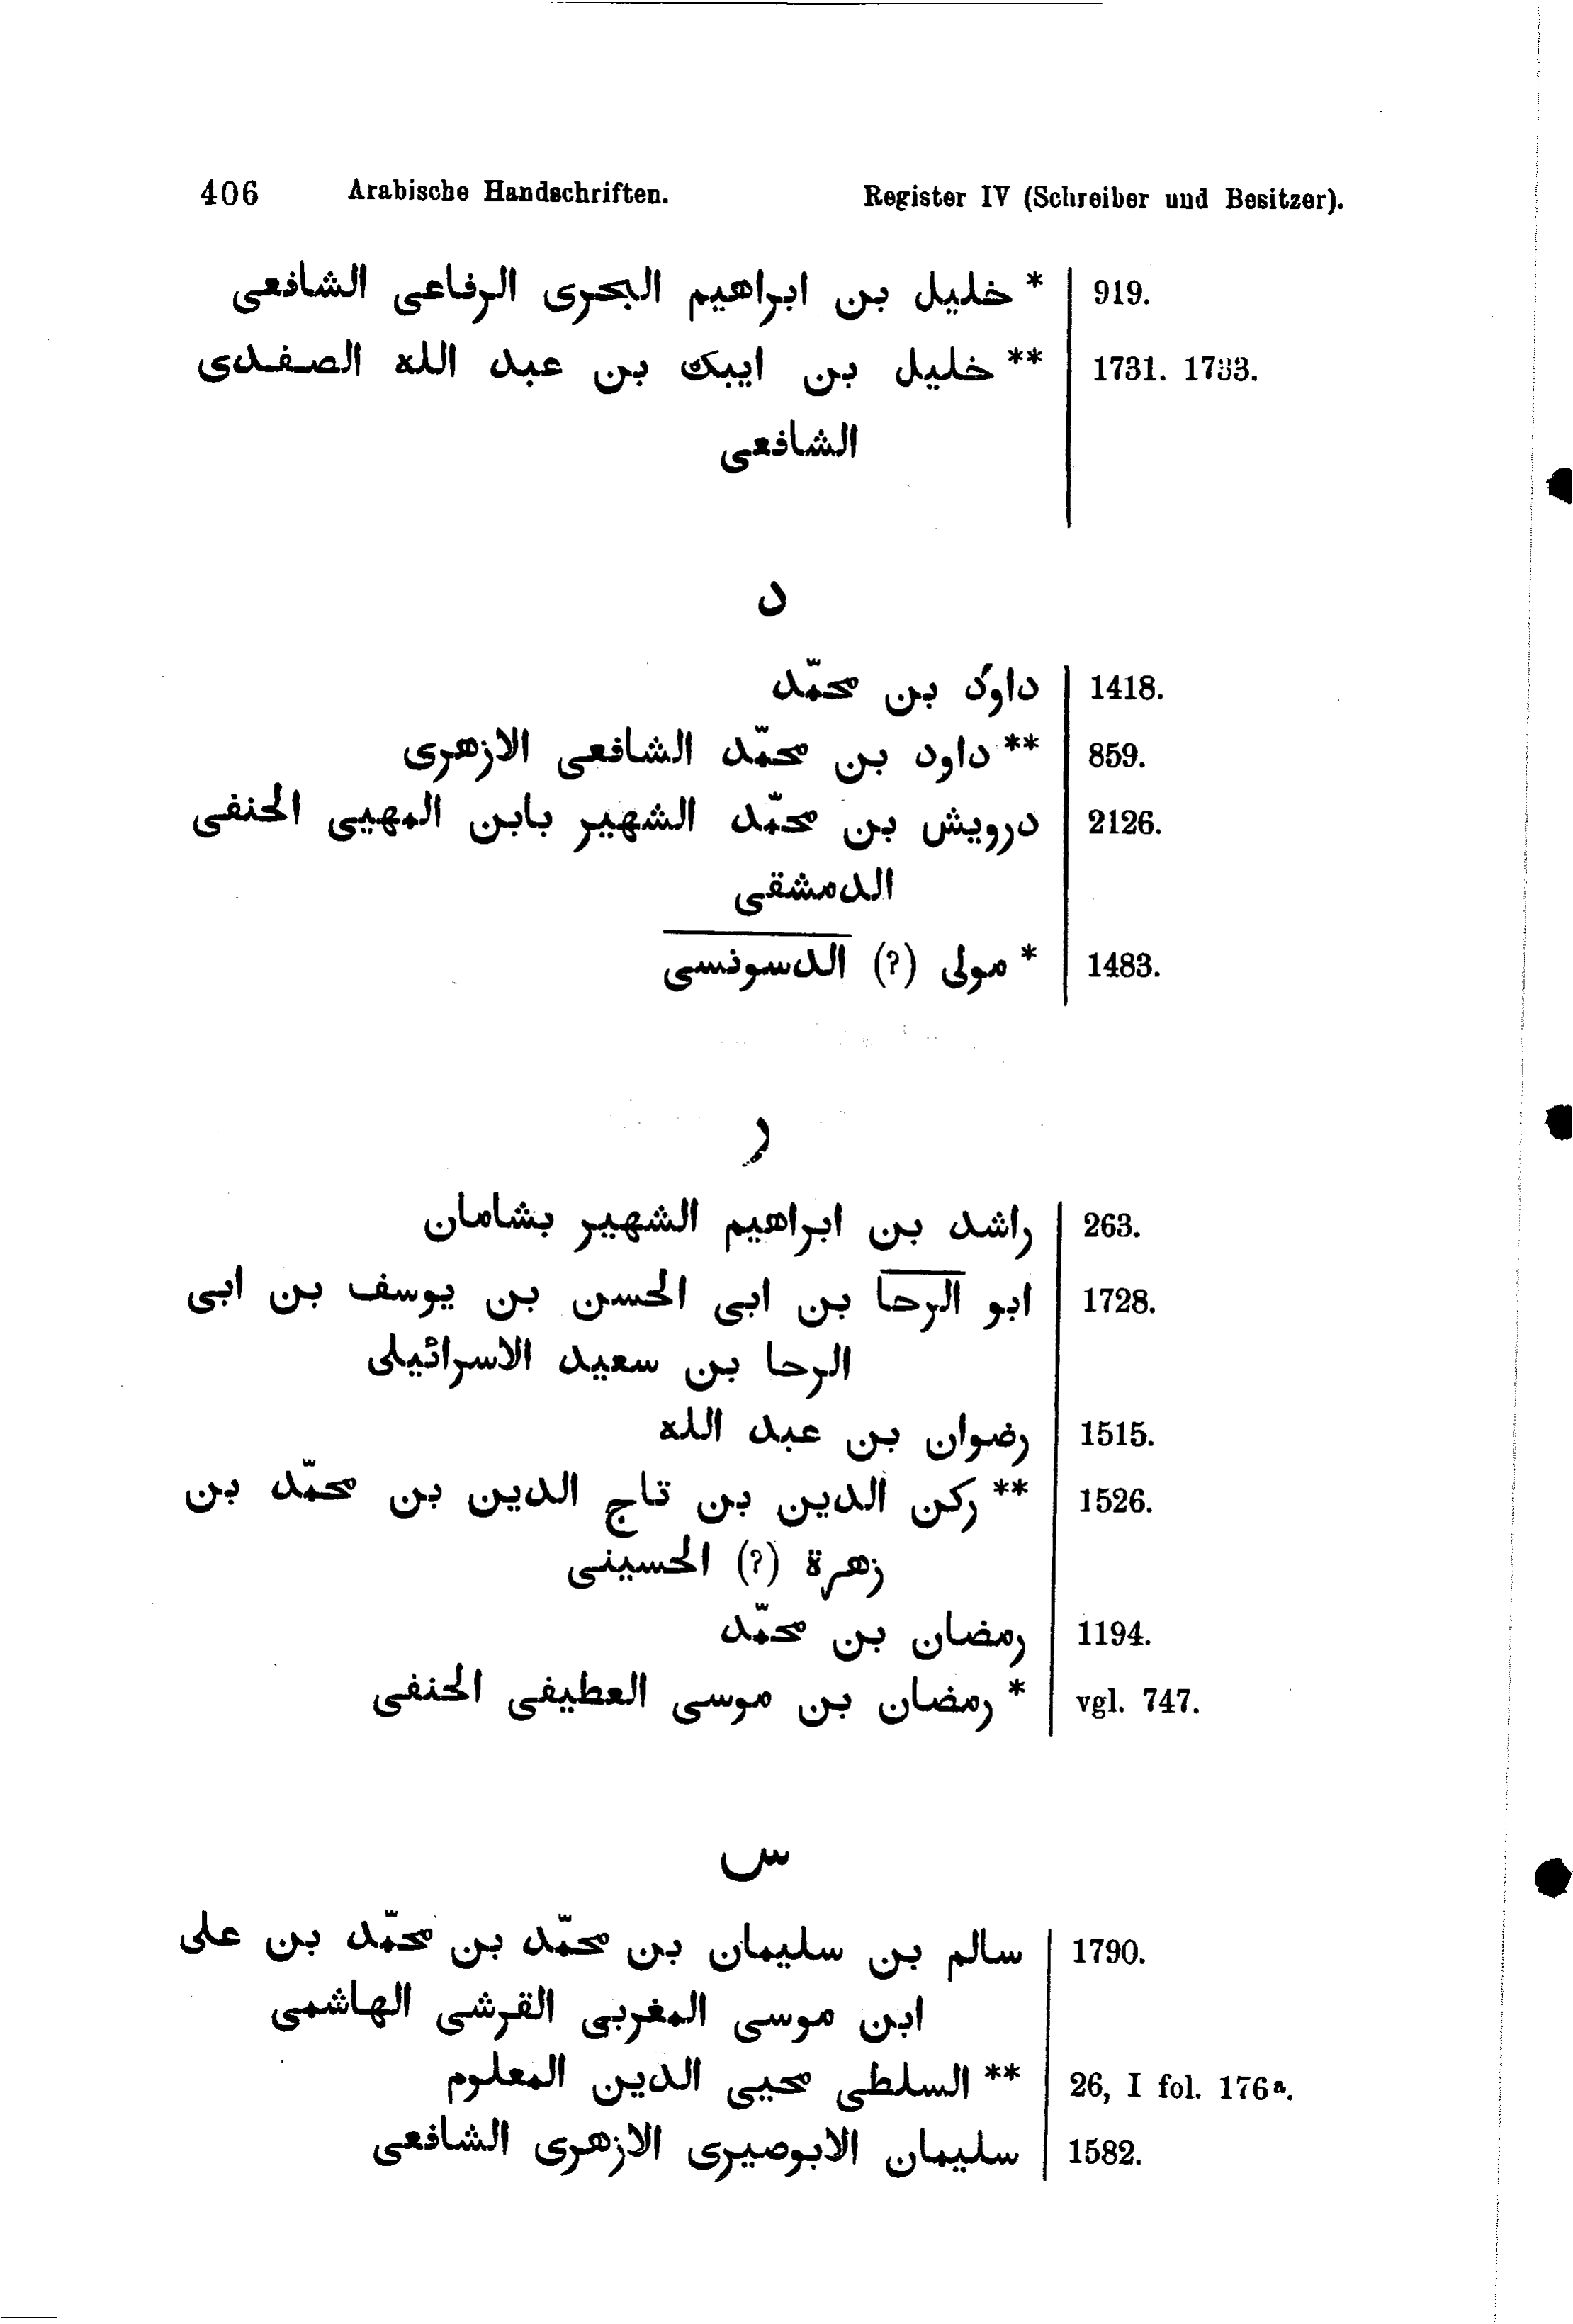 406 Arabische Handschriften. Register IV (Schreiber und Besitzer).
* خليل بن ابراهيم البحرى الرفاعى الشافعى 919.
** خليل بن ايبك بن عبد الله الصفدى 1731. 1733.
الشافعى
د
داود بن محمّد 1418.
** داود بن محمّد الشافعى الازهرى 859.
درويش بن محمّد الشهير بابن المهيبى الحنفى 2126.
الدمشقى
* مولى (?) الدسونسى 1483.
ر
راشد بن ابراهيم الشهير بشامان 263.
ابو الرحا بن ابى الحسن بن يوسف بن ابى 1728.
الرحا بن سعيد الاسرائيلى
رضوان بن عبد الله 1515.
** ركن الدين بن تاج الدين بن محمّد بن 1526.
زهرة (?) الحسينى
رمضان بن محمّد 1194.
* رمضان بن موسى العطيفى الحنفى vgl. 747.
س
سالم بن سليمان بن محمّد بن محمّد بن على 1790.
ابن موسى المغربى القرشى الهاشمى
** السلطى محيى الدين المعلوم 26, I fol. 176ª.
سليمان الابوصيرى الازهرى الشافعى 1582.